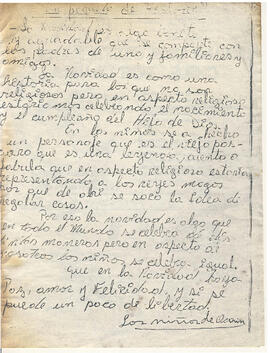 La Navidad es algo bonito
y agradable que se comparte con
los padres de uno y familiares y
amigos.
La Navidad es como una
historia para los que no son
religiosos pero en aspecto religioso
estariamos celebrando el nacimiento
y el cumpleaños del Hijo de Dios.
En los niños se a hecho
un personaje que es el viejo pas-
cuero que es una leyenda, cuento o
fabula que en aspecto religioso estaria
representando a los reyes magos
por que de ahi se saco la idea de
regalar cosas.
Por eso la navidad es algo que
en todo el Mundo se celebra de dis-
tintas maneras pero en aspecto a
nosotros los niños se celebra igual.
que en la Navidad haya
Paz, amor y Felicidad, y si se
puede un poco de libertad.
Los niños de